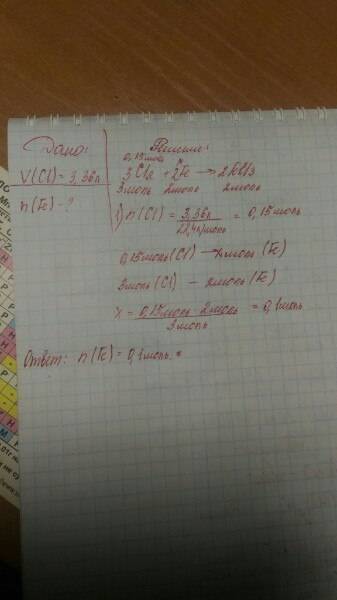 Дано:
V(Cl) = 3,36л
n(Fe) - ?
Решение:
0,15моль x
3Cl₂ + 2Fe → 2FeCl₃
3моль 2моль 2моль
1) n(Cl) = 3,36л / 22,4л/моль = 0,15моль
0,15моль (Cl) — x моль (Fe)
3моль (Cl) — 2моль (Fe)
x = 0,15моль 2моль / 3моль = 0,1моль
Ответ: n(Fe) = 0,1моль.